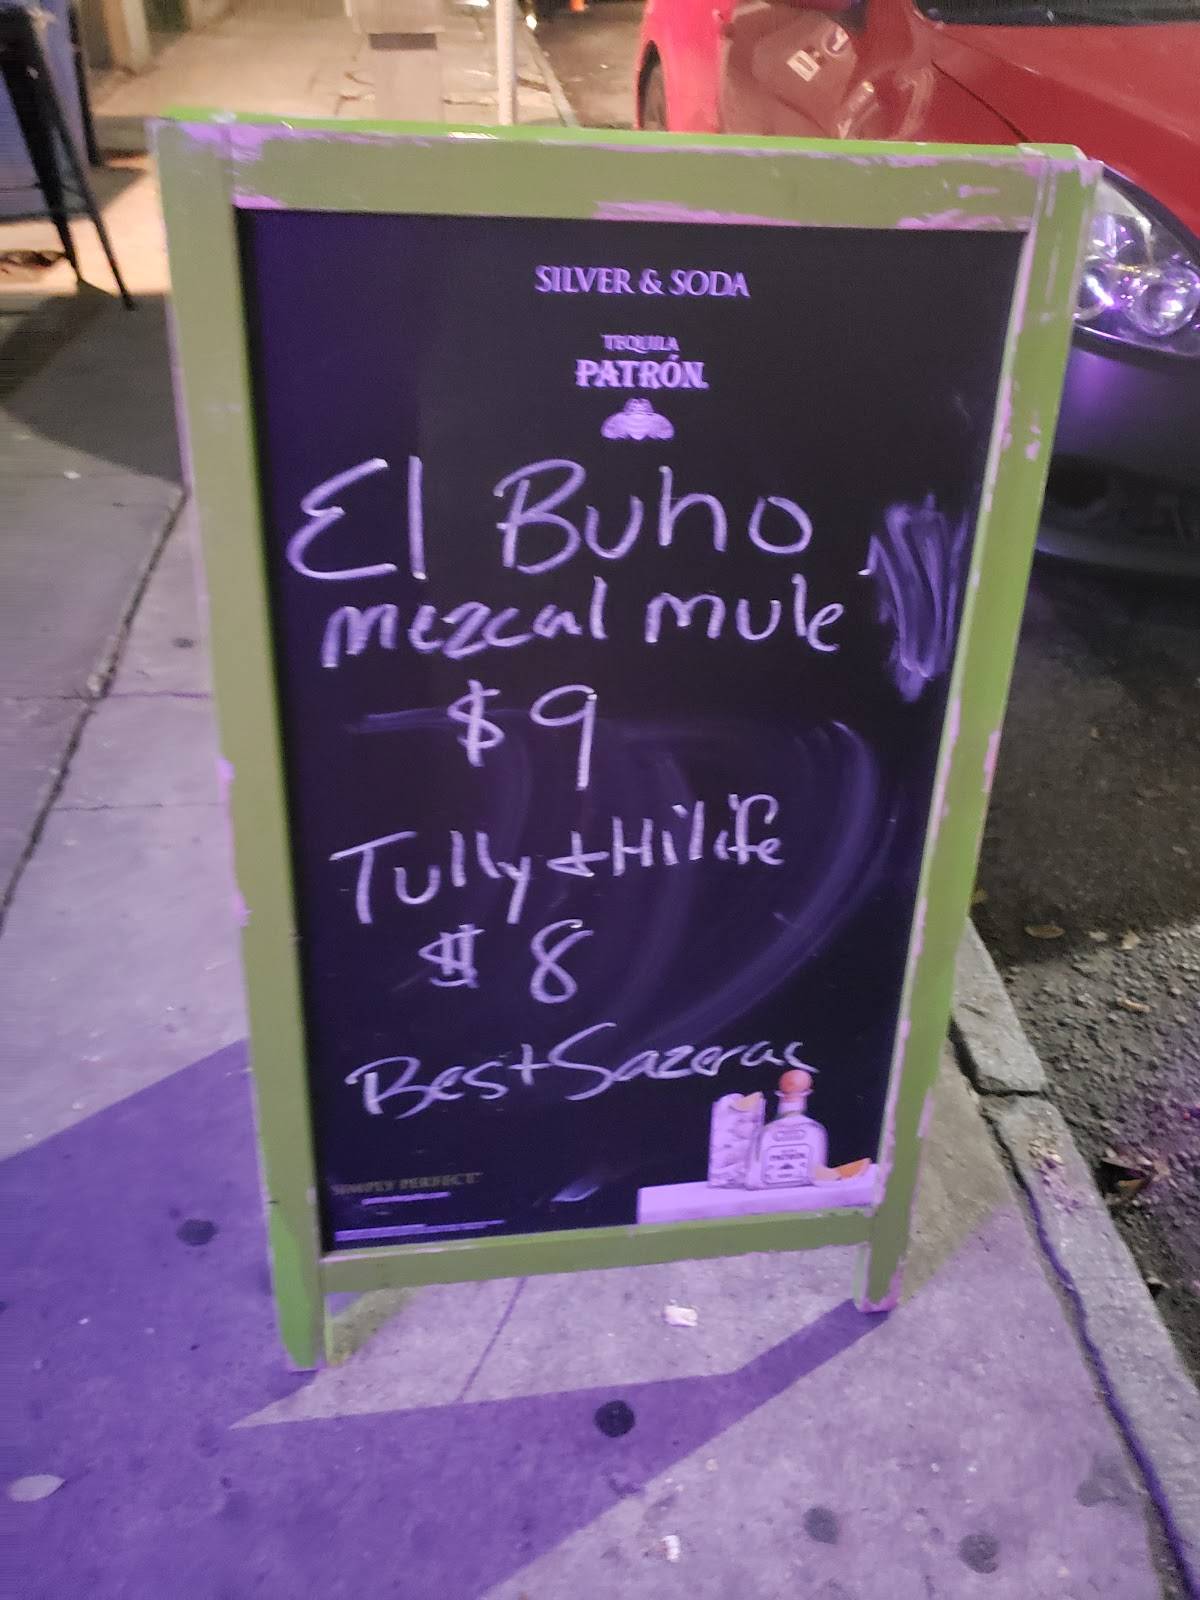 SILVER & SODA
TEQUILA
PATRÓN.
El Buho
mezcal mule
$9
Tully + Hilife
$8
Best Sazerac
PATRÓN
SIMPLY PERFECT